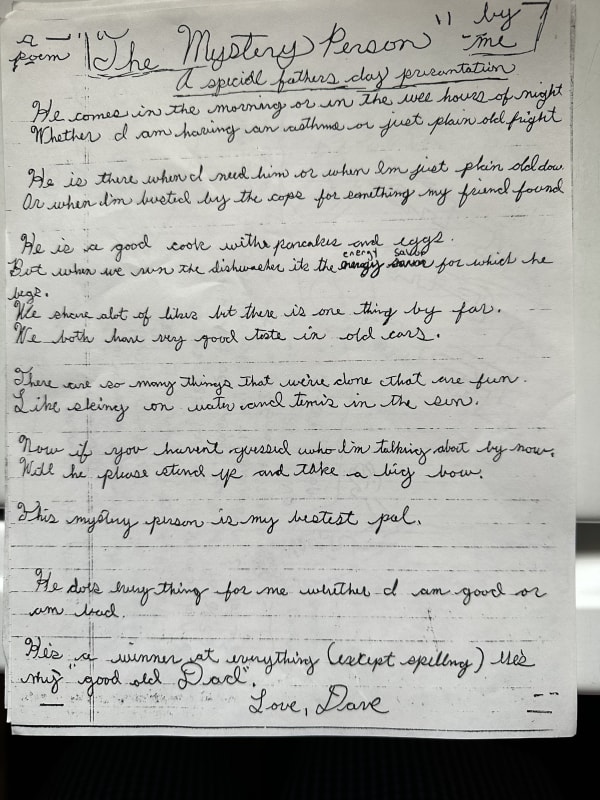 a poem
"The Mystery Person" by me
A special fathers day presentation
He comes in the morning or in the wee hours of night
Whether I am having an asthma or just plain old fright
He is there when I need him or when Im just plain old dow
Or when I'm busted by the cops for somthing my friend found
He is a good cook withe pancakes and eggs.
energy savor
But when we run the dishwasher its the energy savor for which he
begs.
We share alot of likes but there is one thing by far.
We both have very good taste in old cars.
There are so many things that we've done that are fun.
Like skiing on water and tennis in the sun.
Now if you haven't guessed who I'm talking about by now.
Will he please stand up and take a big bow.
This mystery person is my bestest pal.
He does every thing for me whether I am good or
am bad.
He's a winner at everything (except spellng) He's
my "good old Dad".
Love, Dave